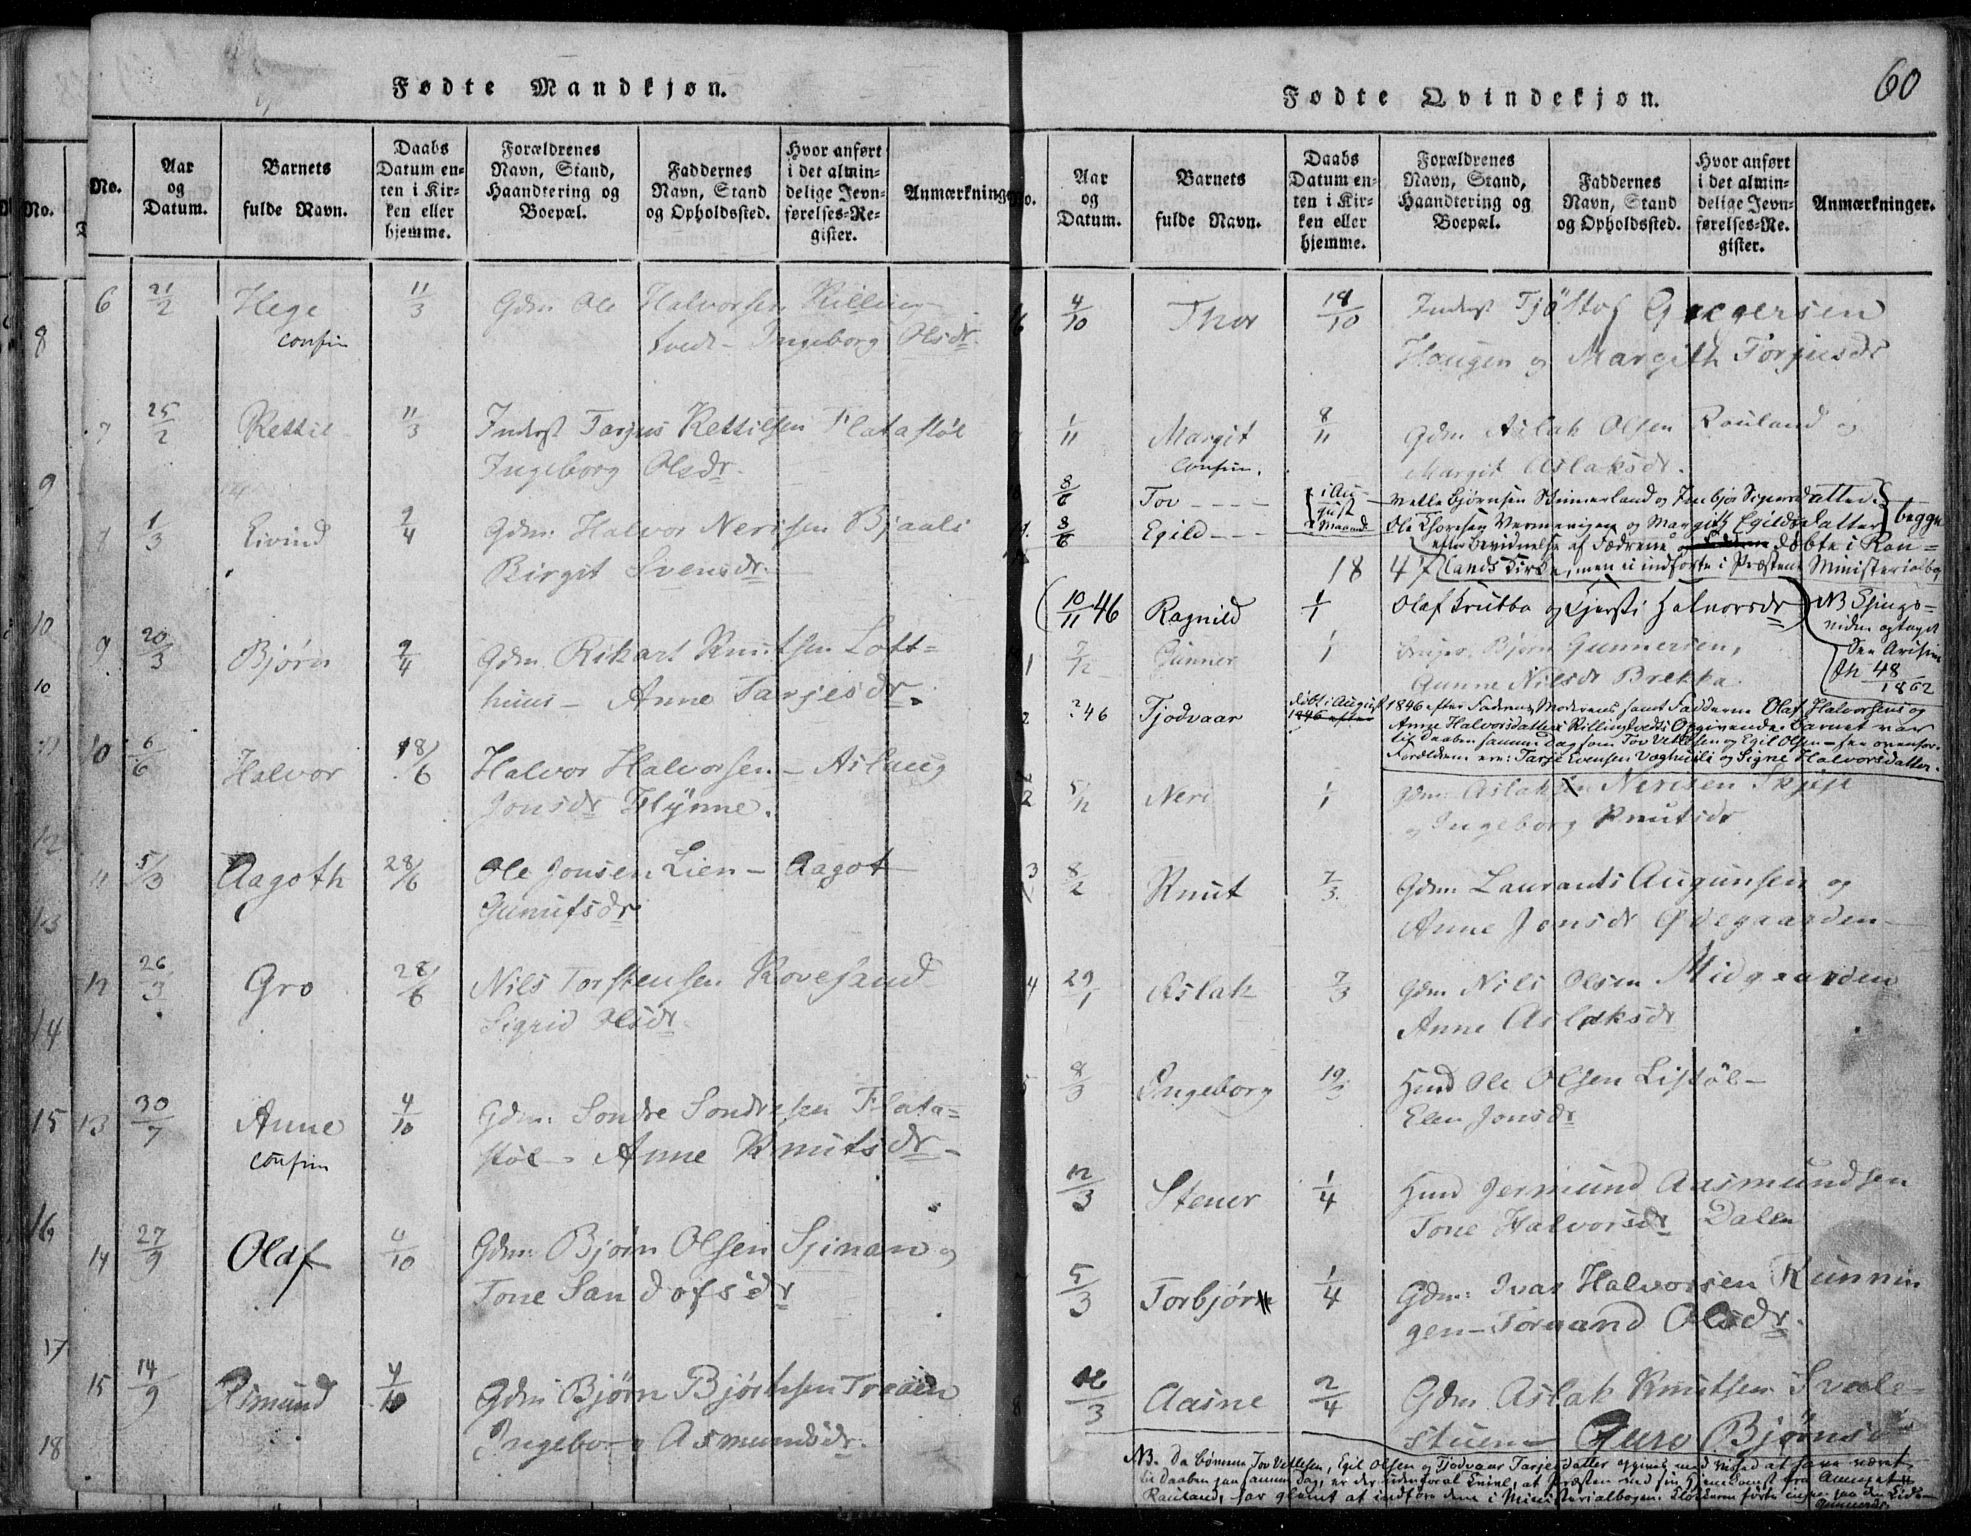 Fødte Mandkjøn.
No.
Aar og Datum.
Barnets fulde Navn.
Daabs Datum enten i Kirken eller hjemme.
Forældrenes Navn, Stand, Haandtering og Boepæl.
Faddernes Navn, Stand og Opholdssted.
Hvor anført i det almindelige Jevnførelses-Register.
Anmærkninger
6 21/2 Hege 11/3 Gdm Ole Halvorsen Killing
confir tvedt - Ingeborg Olsdr.
7 25/2 Kettil 11/3 Inderst Tarjus Kettilsen Flatastöl
Ingeborg Olsdr.
7 1/3 Eivind 9/4 Gdm: Halvor Nerisen Bjaali
Birgit Svensdr.
9 20/3 Bjørn 9/4 Gdm. Rikart Knutsen Loft=
huus - Anne Tarjesdr.
10 6/6 Halvor 18/6 Halvor Halvorsen - Aslaug
Jonsdr Flynne.
11 5/3 Aagoth 28/6 Ole Jonsen Lien - Aagot
Gunufsdr
12 26/3 Gro 28/6 Nils Torstensen
Sigrid Olsdr.
13 30/7 Anne 4/10 Gdm: Sondre Sondresen Flata=
confir støl - Anne Knutsdr -
14 27/9 Olaf 4/10 Gdm: Bjørn Olsen Sjinan og
Tone Sandofsdr
15 14/9 Asmund 4/10 Gdm Bjørn Bjørnsen Traaen
Ingeborg Asmundsdr.
Fødte Qvindekjøn.
60
No.
Aar og Datum.
Barnets fulde Navn.
Daabs Datum enten i Kirken eller hjemme.
Forældrenes Navn, Stand, Haandtering og Boepæl.
Faddernes Navn, Stand og Opholdssted.
Hvor anført i det almindelige Jevnførelses-Re. gister.
Anmærkninger.
6 4/10 Thor 18/10 Inderst Tjøstof Gregersen
Haugen og Margith Torjusdr
1/11 Margit 8/11 Gdm Aslak Olsen Rauland og
Confir. Margit Aslaksdr.
8/6 Tov - - - i Au- Vetle Bjørnsen
gust
8/6 Egild - - - Maaned Ole Thoresen og Margith Egildsdatter begge
efter Bevidnelse af Fædrene døbte i Rau=
1847 lands Kirke, men ei indførte i Præstens Ministerialbog
10/11 46 Ragnild 1/1 Olaf Krubba og Kjersti Halvorsdr NB
Gunner 1/1 Bjørn Gunnersen,
Gunne Nilsdr Brekka.
48
1862
2 ? 46 Tjodvaar døbt i August 1846 efter Faderens, Moderens samt Fadderne Olaf Halvorsens og
1846 efter Anne Halvorsdatters Killingtvedts Opgivende. Barnet var
til Daaben samme Dag som Tov Vetlesen og Egil Olsen - see ovenfor.
Forældrene ere: Tarje Evensen Vaghusli og Signe Halvorsdatter.
2 5/12 Neri 1/1 Gdm: Aslak Nerisen Skjeje
og Ingeborg Knutsdr
3 8/2 Knut 7/3 Gdm: Laurants Augunsen og
Anne Jonsdr Ødegaarden
4 29/1 Aslak 7/3 Gdm Nils Olsen Midgaarden
Anne Aslaksdr
5 8/3 Ingeborg 19/3 Huusd Ole Olsen Listøl -
Elen Jonsdr
12/3 Stener 1/4 Huusd Jermund Aasmundsen
Tone Halvorsdr Dalen
5/3 Torbjørn 1/4 Gdm: Ivar Halvorsen Runnin
gen - Tornand Olsdr.
8 26/3 Aasne 2/4 Gdm Aslak Knutsen Svale=
stuen - Guro Bjørnsdr
NB. Da Børnene Tov Vetlesen, Egil Olsen og Tjodvaar Tarjesdatter opgives med Vished at have været
til Daaben paa samme Dag, er der at Præsten ved sin Hjemkomst fra
Rauland, har glemt at indføre dem i Ministerialbogen.